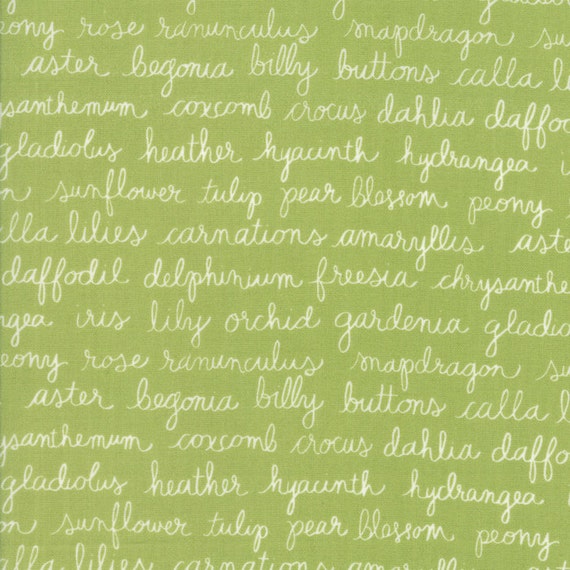 peony rose ranunculus snapdragon su
aster begonia billy buttons calla lil
ysanthemum coxcomb crocus dahlia daffod
gladiolus heather hyacinth hydrangea i
n sunflower tulip pear blossom peony
lla lilies carnations amaryllis aste
daffodil delphinium freesia chrysanthe
ngea iris lily orchid gardenia gladio
eony rose ranunculus snapdragon su
aster begonia billy buttons calla l
ysanthemum coxcomb crocus dahlia daffo
gladiolus heather hyacinth hydrangea
on sunflower tulip pear blossom peony
alla lilies carnations amaryllis aste